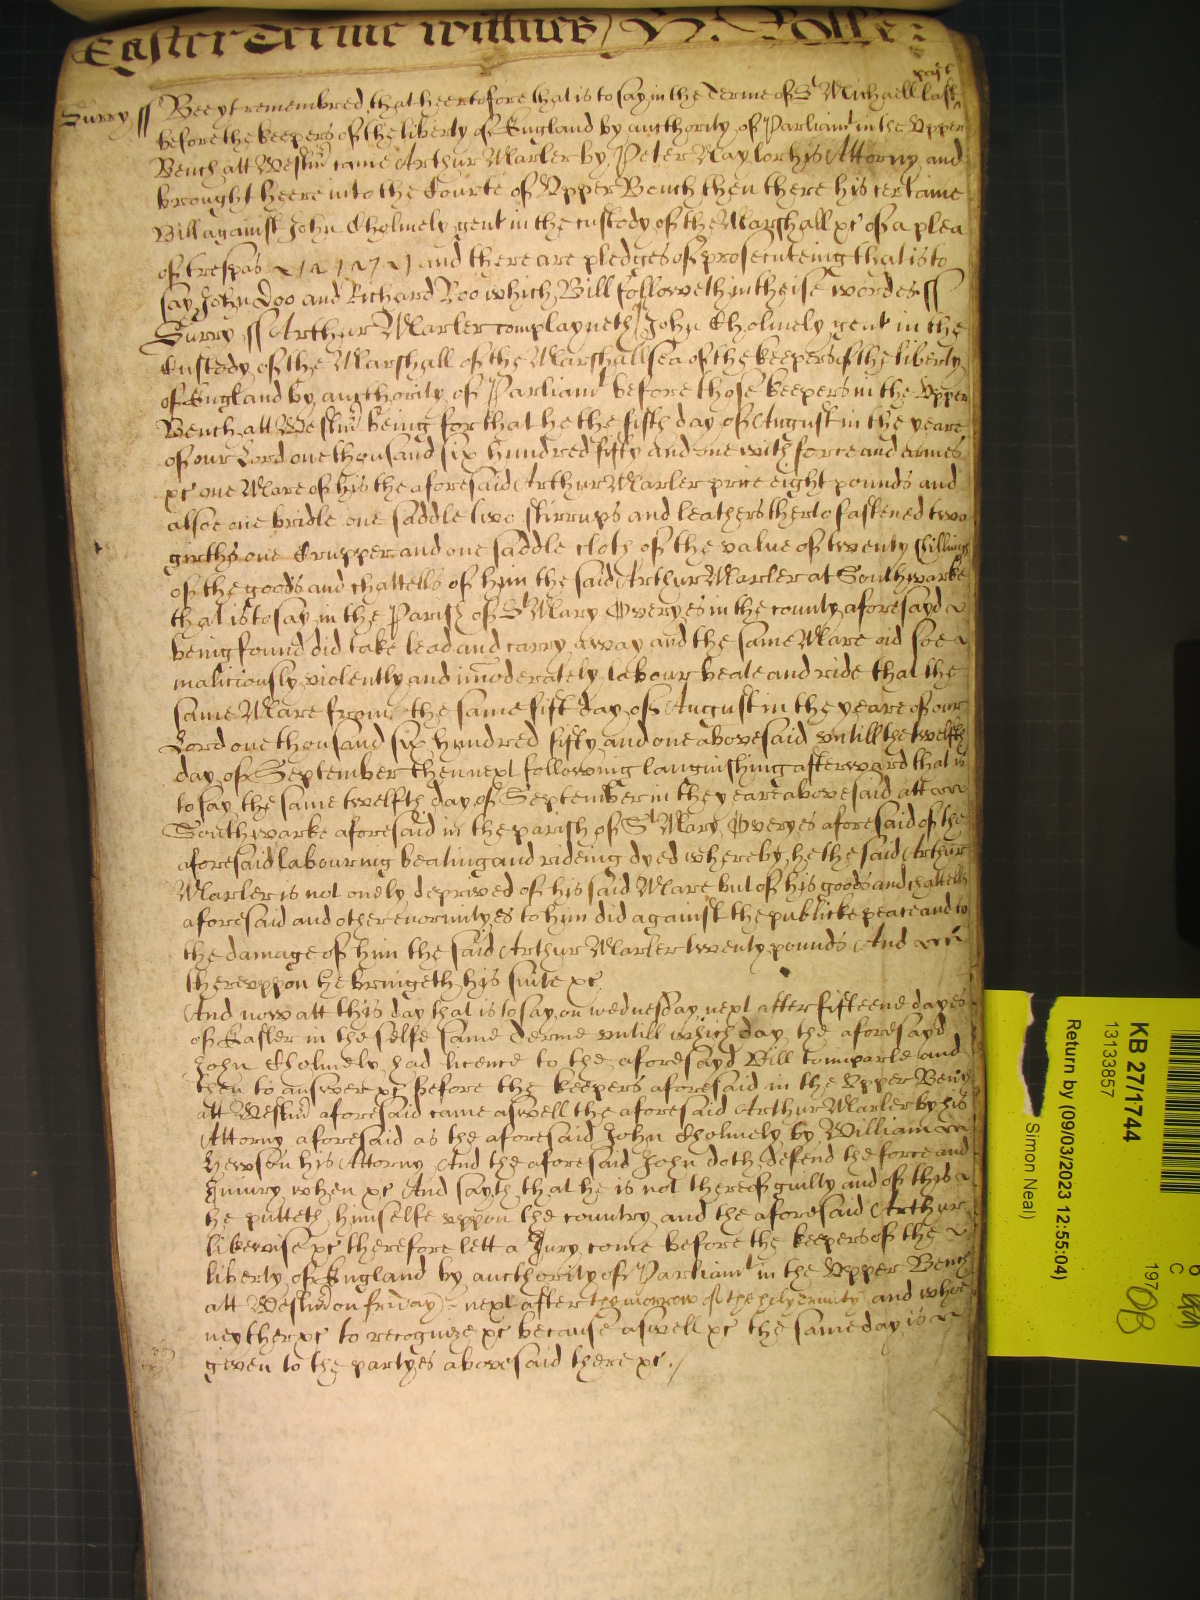 Easter Terme wittnes / H. Rolle
past
Surry // Bee yt remembred that heertofore that is to say in the Terme of St Michaell last
before the keepers of the liberty of England by aucthority of Parliamt in the Upper
Bench att Westmr came Arthur Marler by Peter Naylor his Attorny and
brought heere into the Courte of Upper Bench then there his certaine
Bill against John Cholmely gent in the custody of the Marshall &c of a plea
of trespas and there are pledges of prosecuteing that is to
say John Doo and Richard Roo which Bill followeth in theise wordes //
Surry // Arthur Marler complayneth John Cholmely gent in the
Custody of the Marshall of the Marshallsea of the keepers of the liberty
of England by aucthority of Parliamt before those keepers in the Upper
Bench att Westmr being for that he the fifth day of August in the yeare
of our Lord one thousand six hundred fifty and one with force and armes
&c one Mare of his the aforesaid Arthur Marler price eight pounds and
alsoe one bridle one saddle two stirrups and leathers therto fastened two
girths one Crupper and one saddle cloth of the value of twenty shillings
of the goods and chattells of him the said Arthur Marler at Southwarke
that is to say in the Parish of St Mary Overyes in the county aforesayd
being found did take lead and carry away and the same Mare did soe
maliciously violently and imoderately labour beate and ride that the
same Mare from the same fift day of August in the yeare of our
Lord one thousand six hundred fifty and one abovesaid untill the twelfth
day of September then next following languishing afterward that is
to say the same twelfth day of September in the yeare abovesaid att
Southwarke aforesaid in the parish of St Mary Overyes aforesaid of the
aforesaid labouring beating and rideing dyed whereby he the said Arthur
Marler is not onely deprived of his said Mare but of his goods and chattells
aforesaid and other enormityes to him did against the publicke peace and to
the damage of him the said Arthur Marler twenty pounds And
thereuppon he bringeth his suite &c
And now att this day that is to say on wednesday next after fifteene dayes
of Easter in the selfe same Terme untill which day the aforesayd
John Cholmely had licence to the aforesayd Bill to imparle and
then to answer &c before the keepers aforesaid in the Upper Bench
att Westmr aforesaid came aswell the aforesaid Arthur Marler by his
Attorny aforesaid as the aforesaid John Cholmely by William
Hewson his Attorny And the aforesaid John doth defend the force and
Iniury when &c And sayth that he is not thereof guilty and of this
he putteth himselfe uppon the country and the aforesaid Arthur
likewise &c therefore lett a Jury come before the keepers of the
liberty of England by aucthority of Parliamt in the Upper Bench
att Westmr on friday next after the morrow of the holy Trinity and whoe
neyther &c to recognize &c because aswell &c the same day is
given to the partyes abovesaid there &c /
KB 27/1744
13133857
Return by (09/03/2023 12:55:04)
Simon Neal)
197
C